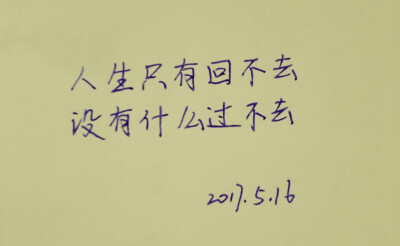 人生只有回不去
没有什么过不去
2017.5.16